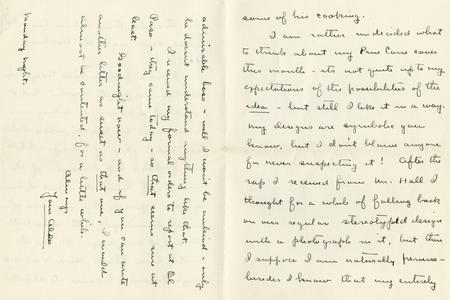 some of his cooking.
I am rather undecided what
to think about my Pine Cone cover
this month - its not quite up to my
expectations of the possibilities of the
idea - but still I like it in a way.
My designs are symbolic you
know, but I don't blame anyone
for never suspecting it! After the
rap I received from Mr. Hall I
thought for a while of falling back
on our regular stereotyped design
with a photograph in it, but then
I suppose I am naturally perverse -
besides I know that my entirely
admirable boss - well I won't be unkind - only
he doesn't understand anything like that.
I received my formal orders to report at El
Paso - they came today - so that seems sure at
least.
Goodnight now - and if you can write
another letter as sweet as that one, I would
almost be contented, for a little while.
Always,
Your Aldo
Monday night.